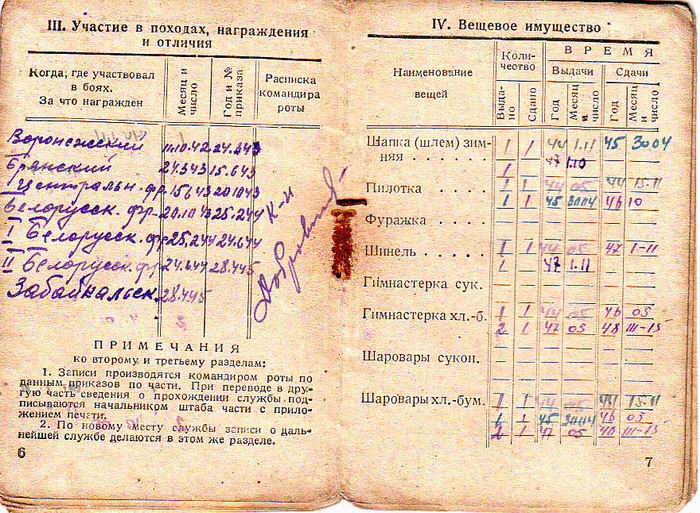 III. Участие в походах, награждения
и отличия
Когда, где участвовал
в боях.
За что награжден
Месяц и
число
Год и №
приказа
Расписка
командира
роты
Воронежский
24.3.43
Брянский 24.3.43 15.6.43
Центральн. фр. 15.6.43 20.10.43
Белорусск. фр. 20.10.43 25.2.44
I Белорусск. фр. 25.2.44 24.6.44
II Белорусск. фр. 24.6.44 28.4.45
Забайкальск. 28.4.45
К-н
ПРИМЕЧАНИЯ
ко второму и третьему разделам:
1. Записи производятся командиром роты по
данным приказов по части. При переводе в дру-
гую часть сведения о прохождении службы под-
писываются начальником штаба части с прило-
жением печати.
2. По новому месту службы записи о даль-
нейшей службе делаются в этом же разделе.
6
IV. Вещевое имущество
Наименование
вещей
Коли-
чество
ВРЕМЯ
Выдачи
Сдачи
Выда-
но
Сдано
Год
Месяц
и
число
Год
Месяц
и
число
Шапка (шлем) зим- 1 1 44 1.11 45 30 04
няя . . . . . 1 47 1.10
Пилотка . . . . . 1 1 44 05 44 15.11
1 1 45 46 10
Фуражка . . . . .
Шинель . . . . . 1 1 44 05 47 1-11
1 47 1.11
Гимнастерка сук.
Гимнастерка хл.-б. 1 1 44 05 46 05
2 1 47 05 48 III-15
Шаровары сукон.
Шаровары хл.-бум. 1 1 44 05 44 15.11
1 1 45 46 05
2 1 47 05 48 III-15
7